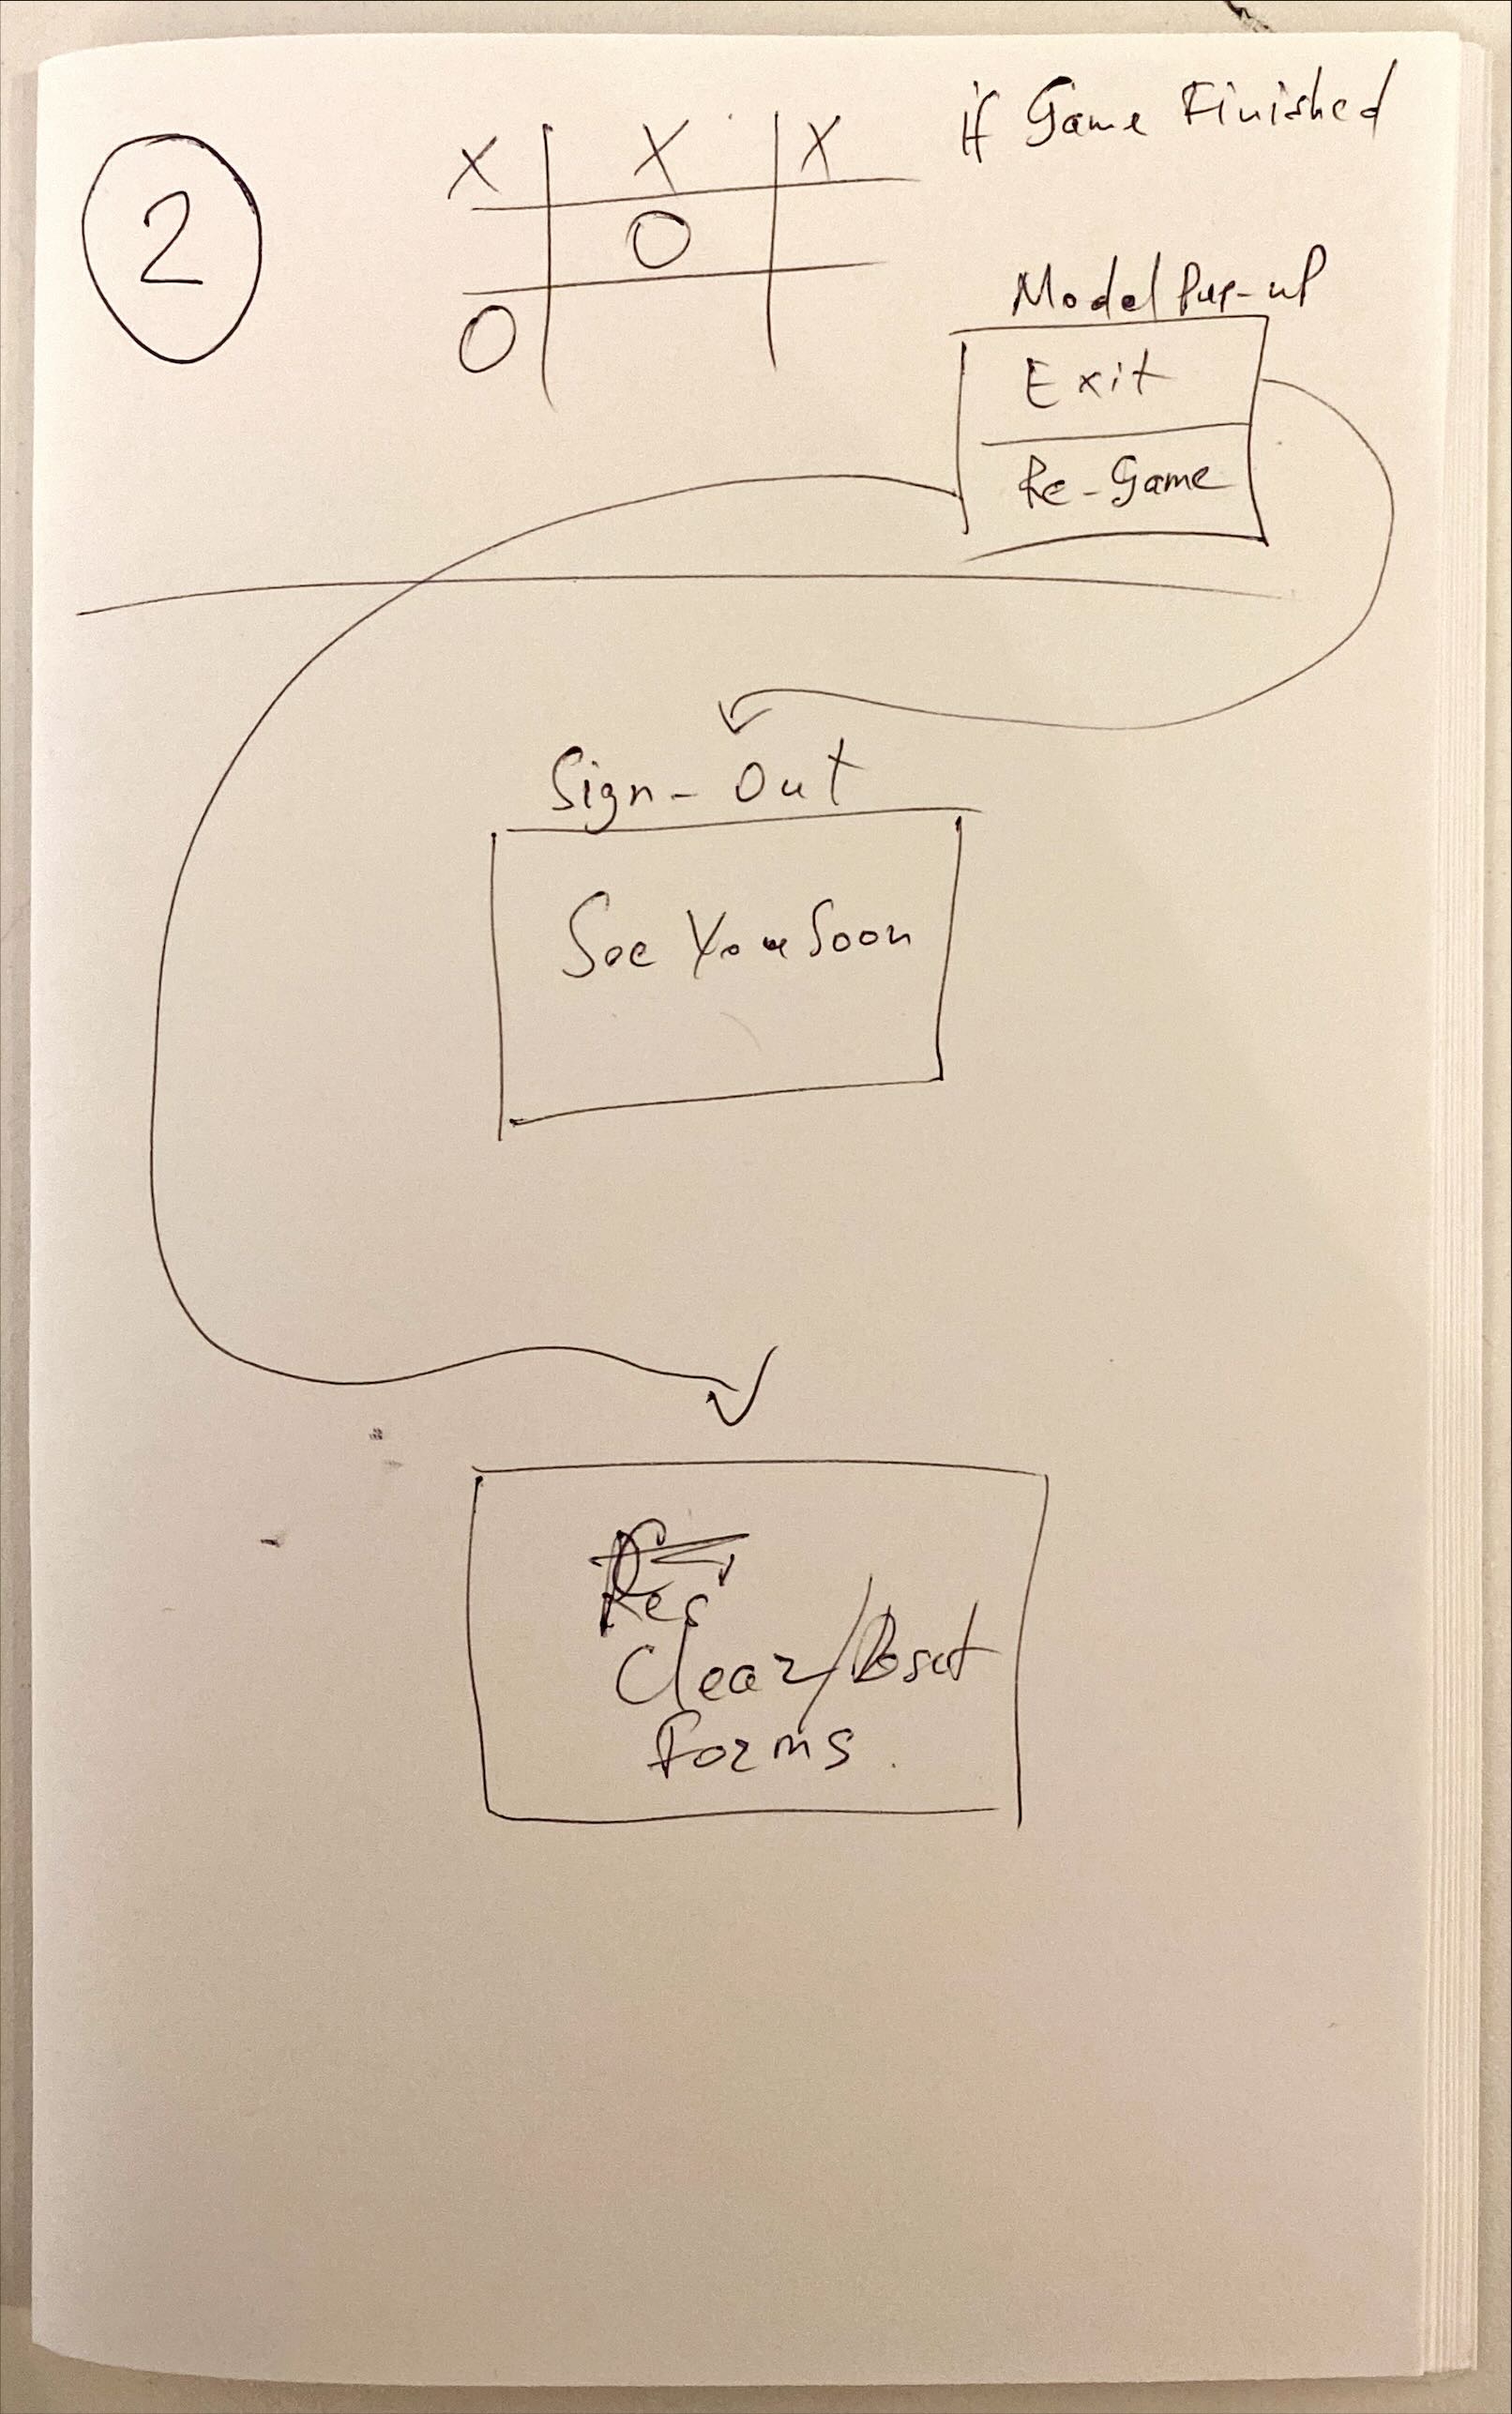 if Game Finished
2
X X X
O
O
Model Pup-up
Exit
Re-Game
Sign-Out
See You Soon
Clear/Reset
Forms.